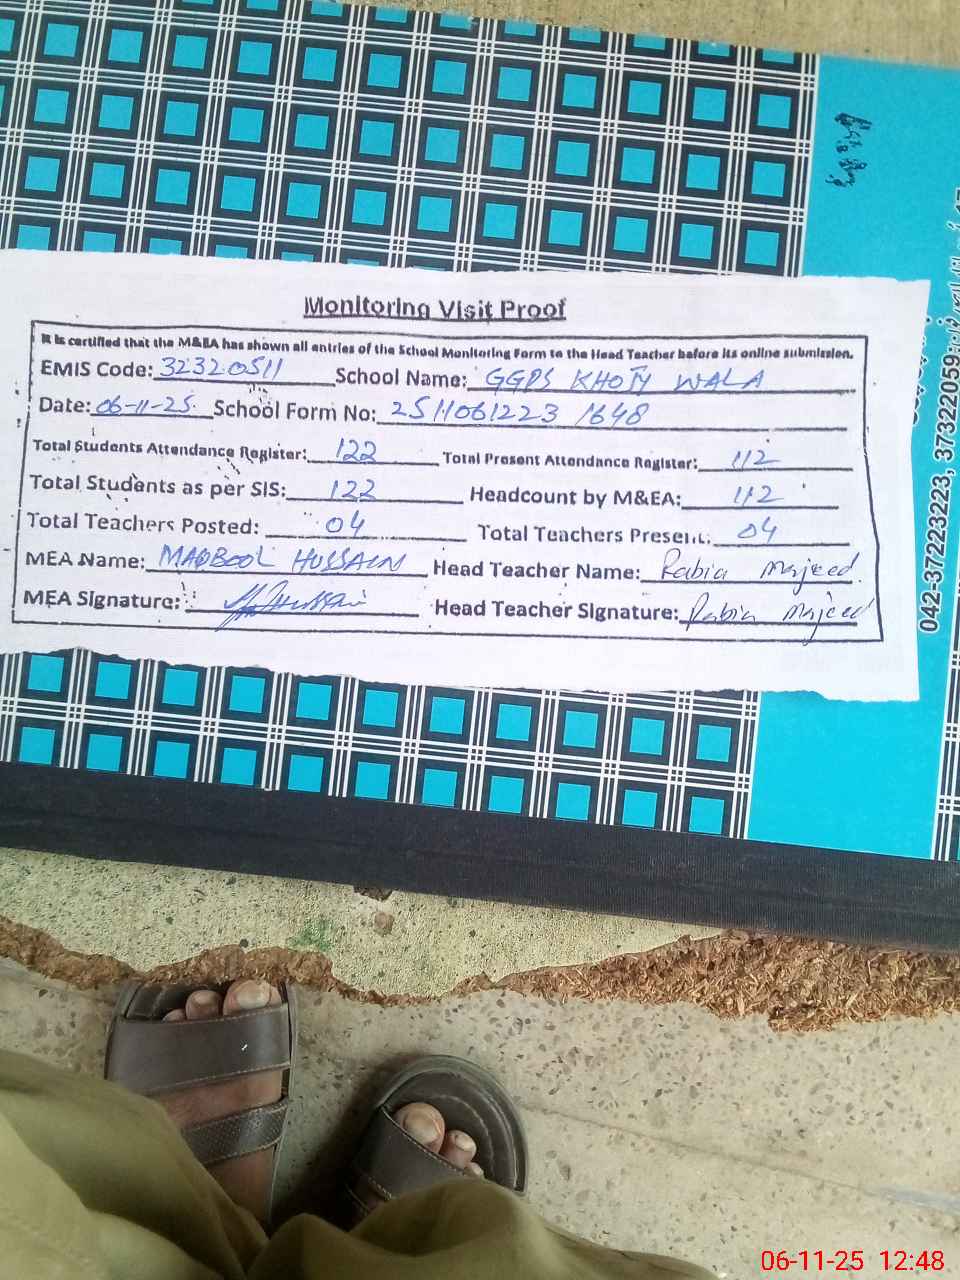 Monitoring Visit Proof
It is certified that the M&EA has shown all entries of the School Monitoring Form to the Head Teacher before its online submission.
EMIS Code: 32320511 School Name: GGPS KHOTY WALA
Date: 06-11-25 School Form No: 2511061223 1648
Total Students Attendance Register: 122 Total Present Attendance Register: 112
Total Students as per SIS: 122 Headcount by M&EA: 112
Total Teachers Posted: 04 Total Teachers Present: 04
MEA Name: MAQBOOL HUSSAIN Head Teacher Name: Rabia Majeed
MEA Signature: Hussain Head Teacher Signature: Rabia Majeed
042-37223223, 37322059
06-11-25 12:48